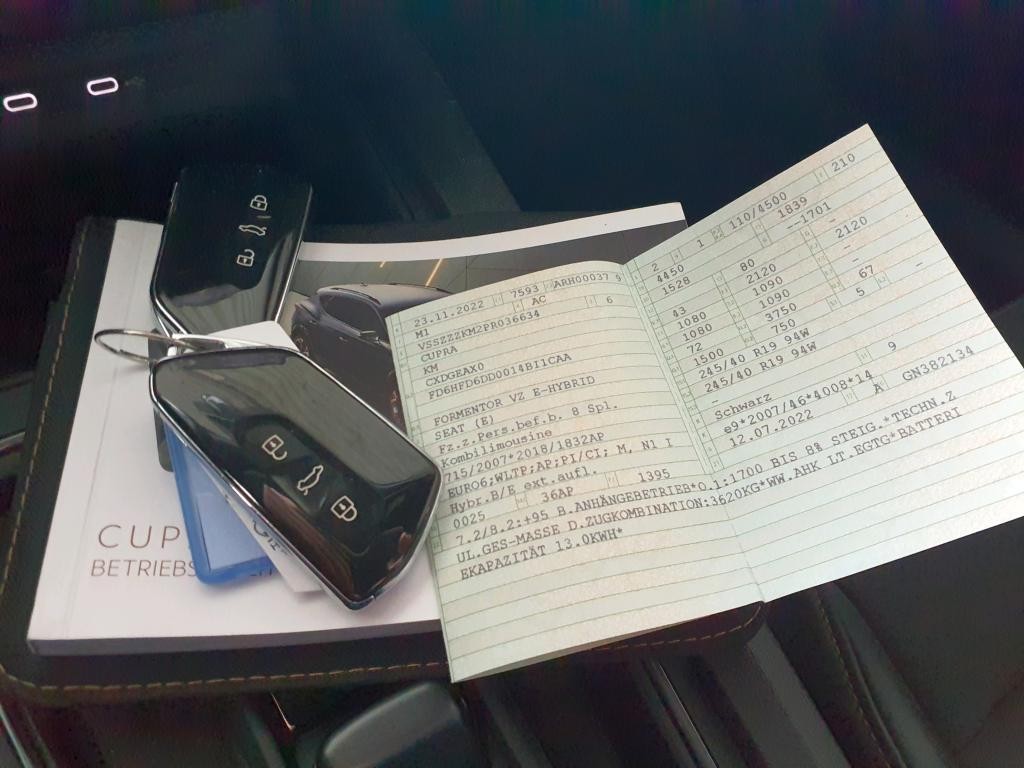 CUP
BETRIEBS
23.11.2022 7593 ARH00037 9
M1 AC 6
VSSZZZKM2PR036634
CUPRA
KM
CXDGEAX0
FD6HFD6DD0014B11CAA
FORMENTOR VZ E-HYBRID
SEAT (E)
Fz.z.Pers.bef.b. 8 Spl.
Kombilimousine
715/2007*2018/1832AP
EURO6;WLTP;AP;PI/CI; M, N1 I
Hybr.B/E ext.aufl.
0025 36AP 1395
2 1 110/4500 210
4450 1839
1528 --1701
43 80 2120
1080 2120 -
1080 1090 -
72 1090 67 -
1500 3750 5
245/40 R19 94W 750
245/40 R19 94W
-
Schwarz 9
e9*2007/46*4008*14
12.07.2022 A GN382134
7.2/8.2:+95 B.ANHÄNGEBETRIEB*O.1:1700 BIS 8% STEIG.*TECHN.Z
UL.GES-MASSE D.ZUGKOMBINATION:3620KG*WW.AHK LT.EGTG*BATTERI
EKAPAZITÄT 13.0KWH*